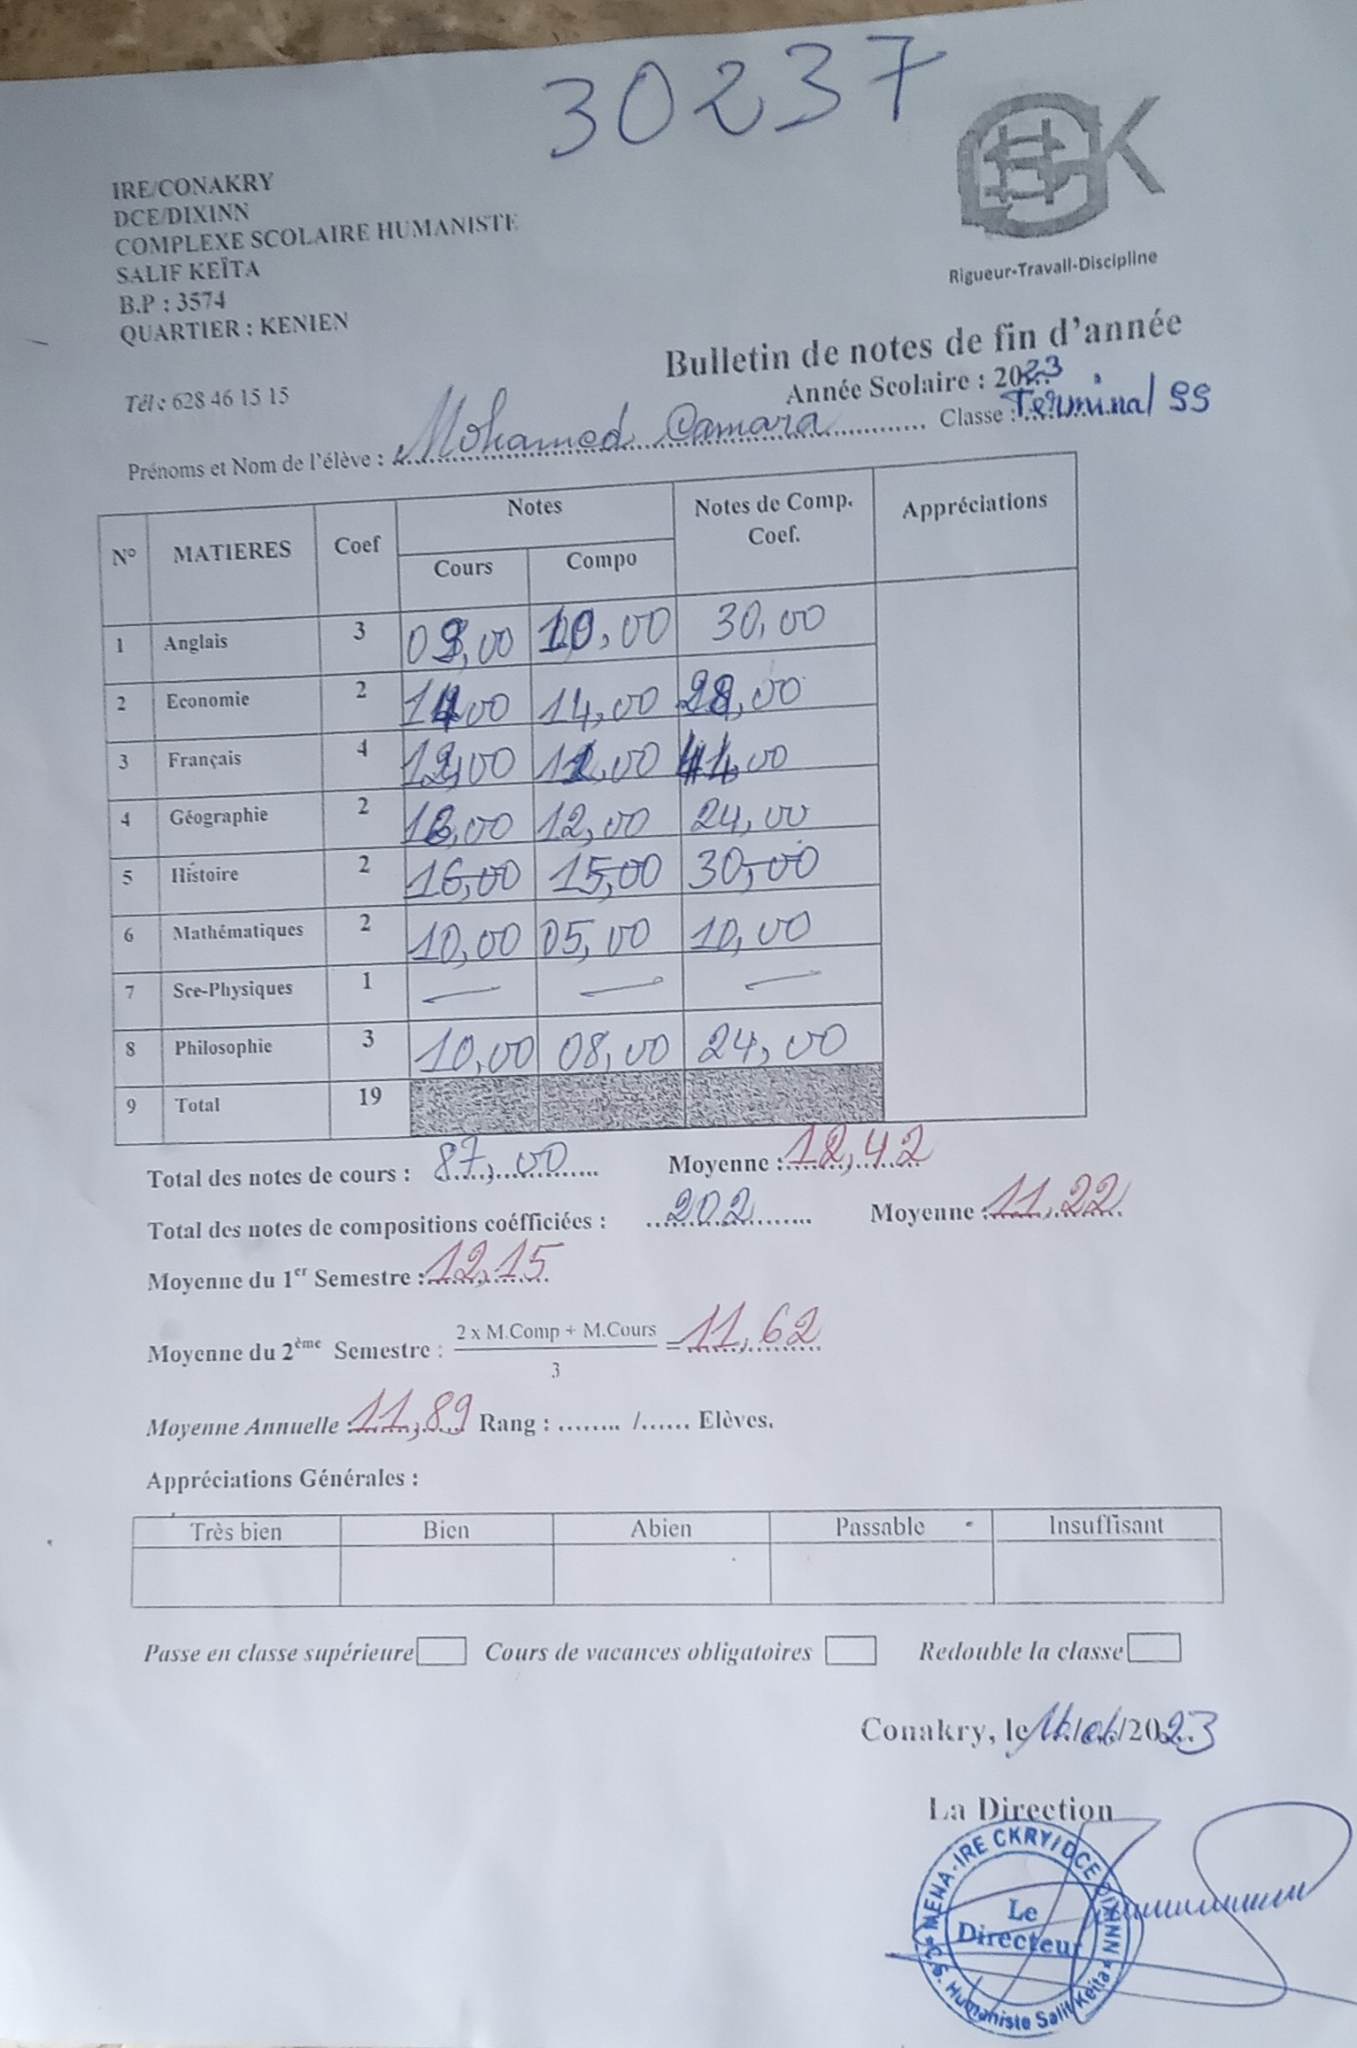 30237
IRE/CONAKRY
DCE/DIXINN
COMPLEXE SCOLAIRE HUMANISTE
SALIF KEÏTA
B.P : 3574
QUARTIER : KENIEN
Tél : 628 46 15 15
Rigueur-Travail-Discipline
Bulletin de notes de fin d'année
Année Scolaire : 2023
Prénoms et Nom de l'élève : Mohamed Camara Classe : Terminal SS
N° MATIERES Coef Notes Notes de Comp. Coef. Appréciations
Cours Compo
1 Anglais 3 10,00 30,00
2 Economie 2 14,00 28,00
3 Français 4 12,00
4 Géographie 2 12,00 24,00
5 Histoire 2 16,00 15,00 30,00
6 Mathématiques 2 10,00 05,00 10,00
7 Sce-Physiques 1 — — —
8 Philosophie 3 10,00 08,00 24,00
9 Total 19
Total des notes de cours : 87,00 Moyenne : 12,42
Total des notes de compositions coéfficiées : 202 Moyenne : 11,22
Moyenne du 1er Semestre : 12,15
Moyenne du 2ème Semestre : 2 x M.Comp + M.Cours / 3 = 11,62
Moyenne Annuelle : 11,89 Rang : ........ /...... Elèves.
Appréciations Générales :
Très bien Bien Abien Passable Insuffisant
Passe en classe supérieure Cours de vacances obligatoires Redouble la classe
Conakry, le /2023
La Direction
MENA-IRE CKRY/DCE DIXINN
Le
Directeur
C.S. Humaniste Salif Keita